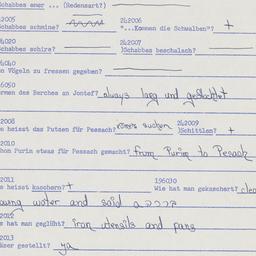 chabbes ener ... (Redensart?)
2005
chabbes schmine?
242006
"...Kommen die Schwalben"? +
4020
chabbes schire?
242007
)Schabbes beschalach?
4040
n Vögeln zu fressen gegeben?
6050
rmen des Barches an Jontef? always long und geflochtet
2008
s heisst das Putzen für Pessach? suchen
242009
)Schittlen? +
2010
hon Purim etwas für Pessach gemacht? from Purim to Pesach
2011
s heisst kaschern? +
196030
Wie hat man gekaschert? clea
water and said a
2012
s hat man geglüht? iron utensils and pans
2013
äser gestellt? ya